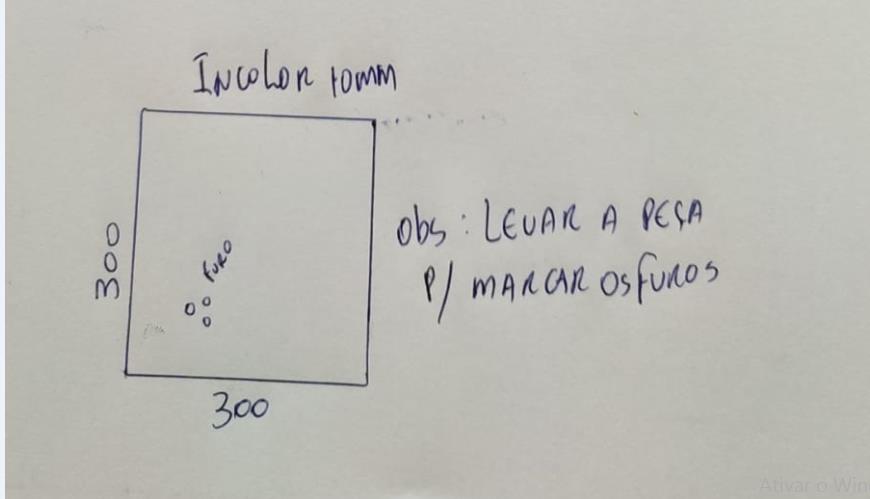 Incolor 10mm
300
Furo
obs: LEVAR A PEÇA
P/ MARCAR OS FUROS
300
Ativar o Win